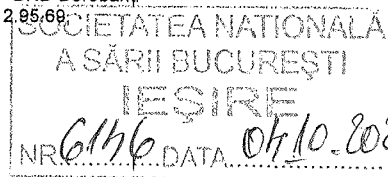 2.95.69,
SOCIETATEA NAȚIONALĂ
A SĂRII BUCUREȘTI
IEȘIRE
NR. 6146 DATA 04.10.202